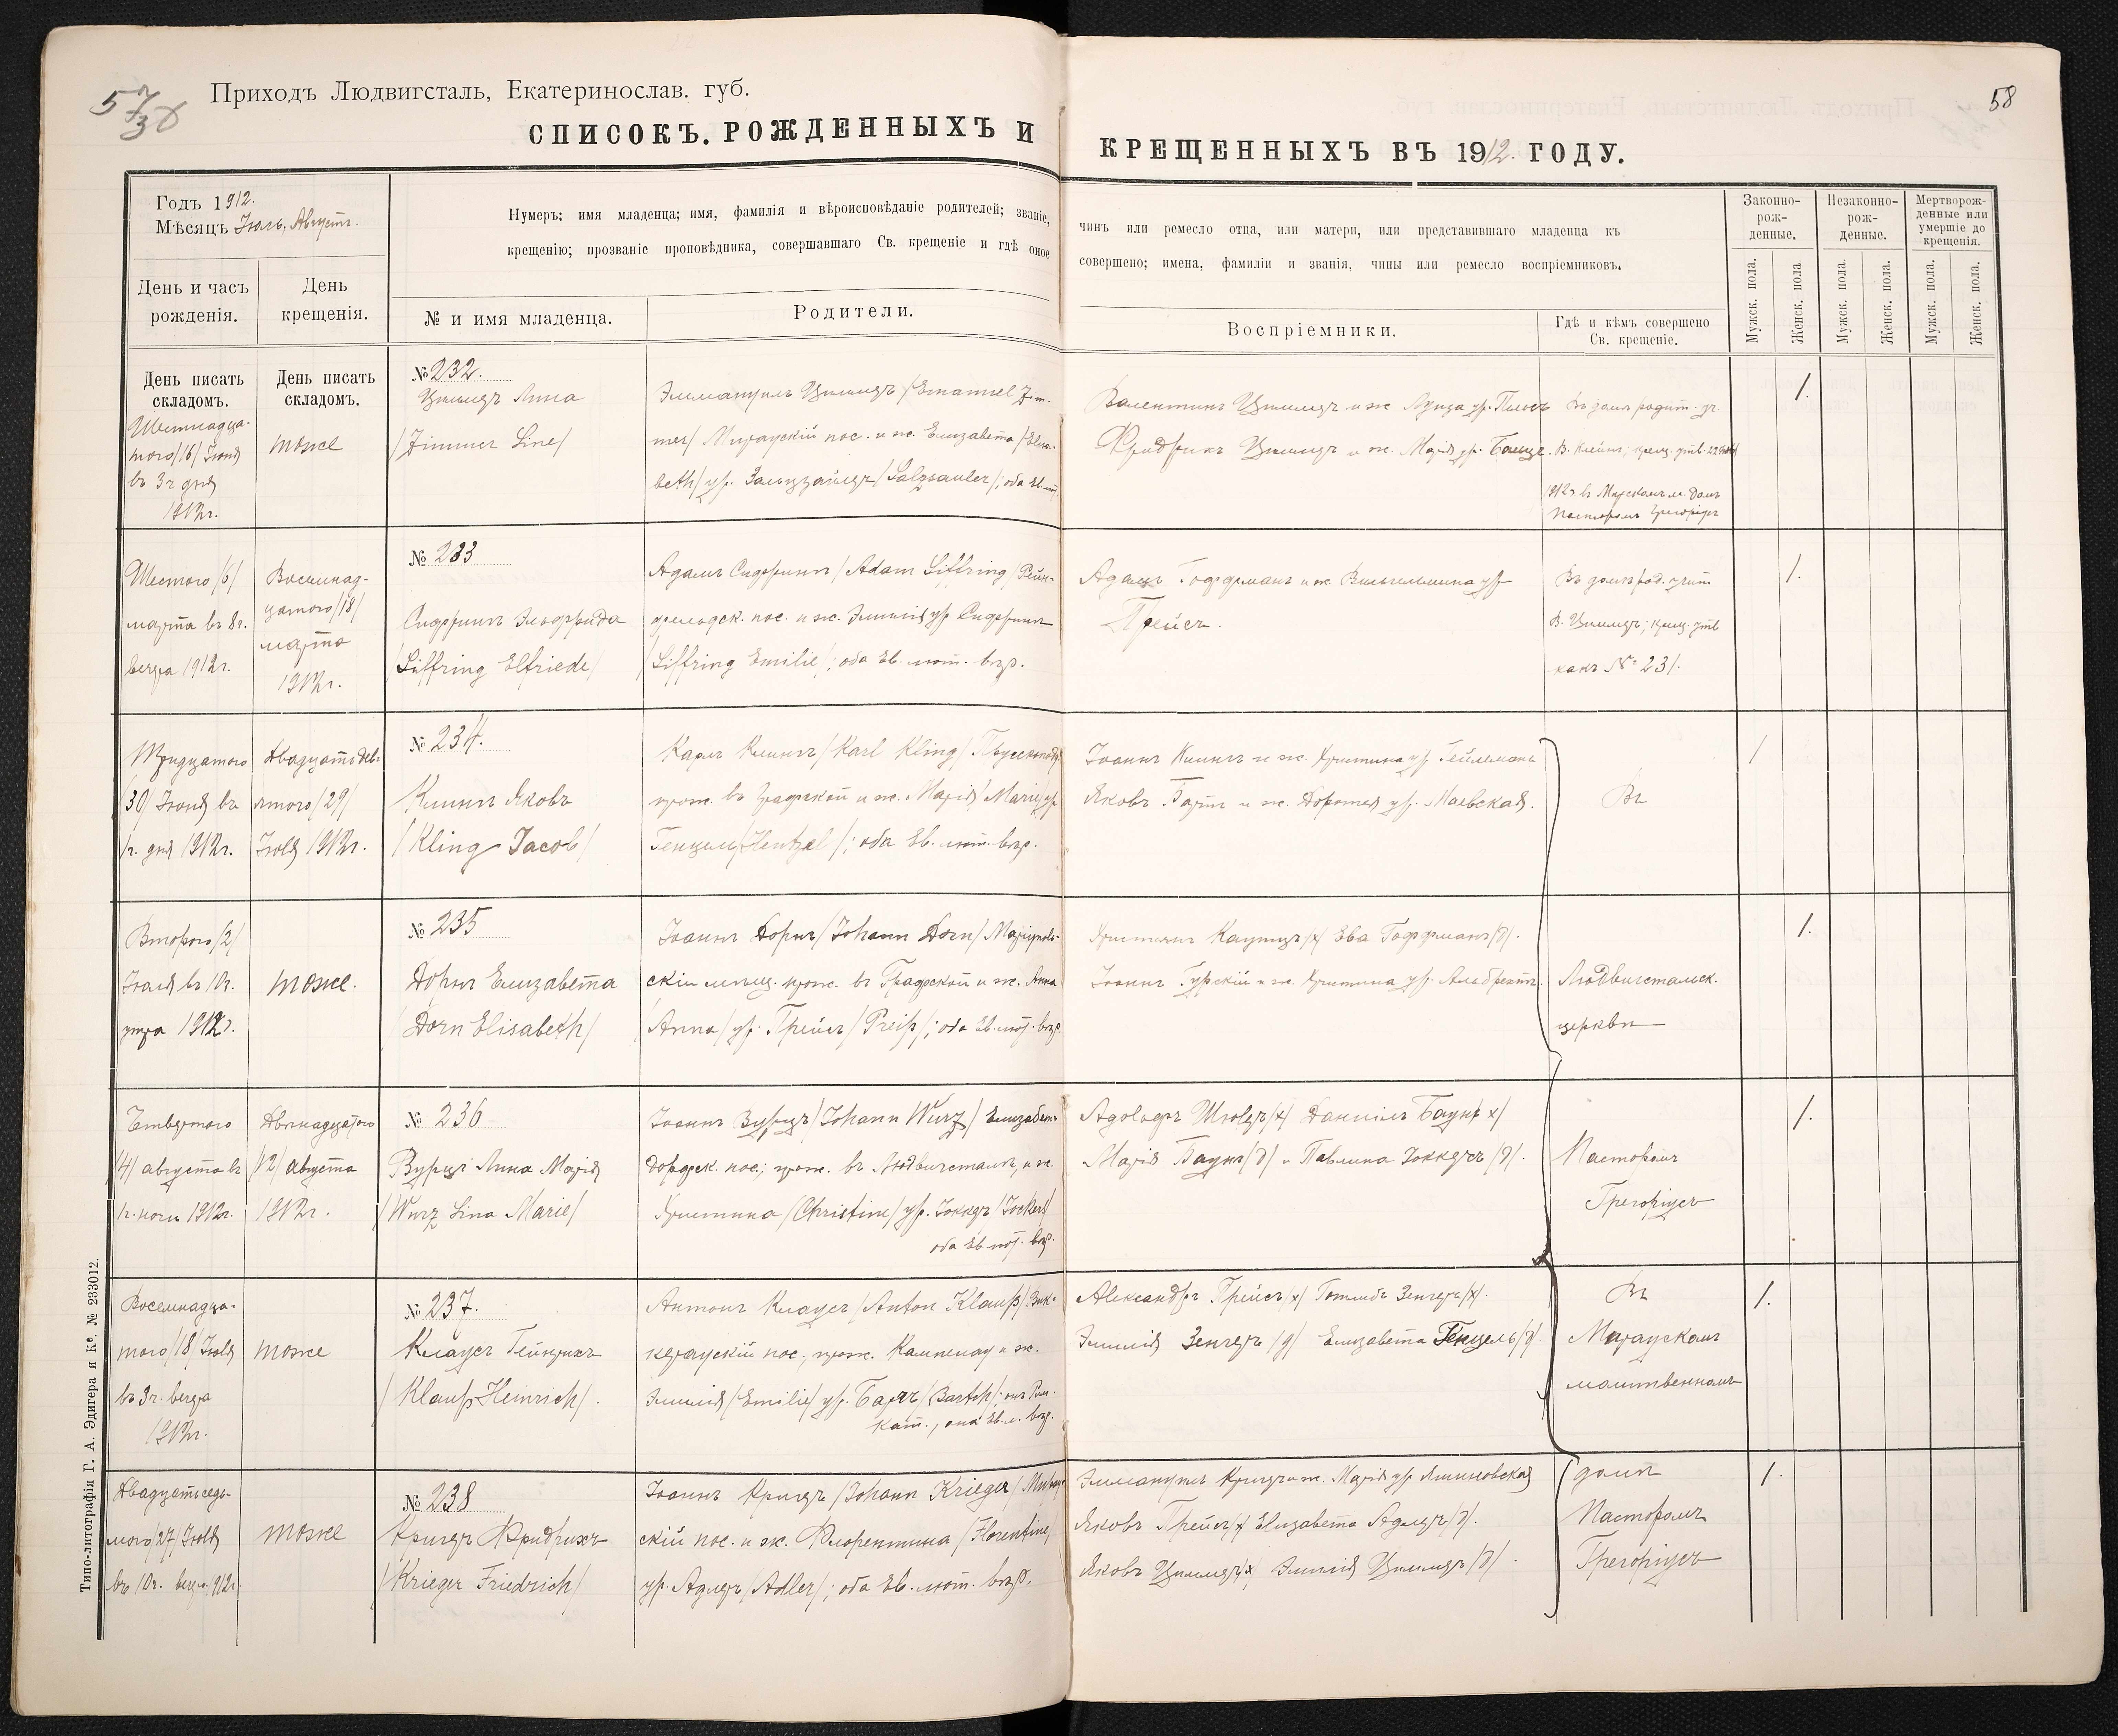 57/38
Приходъ Людвигсталь, Екатеринослав. губ.
58
СПИСОКЪ. РОЖДЕННЫХЪ И КРЕЩЕННЫХЪ ВЪ 1912. ГОДУ.
Годъ 1912.
Мѣсяцъ Іюль, Августъ.
День и часъ рожденія.
День крещенія.
Нумеръ; имя младенца; имя, фамилія и вѣроисповѣданіе родителей; званіе, чинъ или ремесло отца, или матери, или представившаго младенца къ
крещенію; прозваніе проповѣдника, совершавшаго Св. крещеніе и гдѣ оное совершено; имена, фамиліи и званія, чины или ремесло воспріемниковъ.
№ и имя младенца.
Родители.
Воспріемники.
Гдѣ и кѣмъ совершено Св. крещеніе.
Законно-рож-денные.
Незаконно-рож-денные.
Мертворож-денные или умершіе до крещенія.
Мужск. пола.
Женск. пола
Мужск. пола.
Женск. пола.
Мужск. пола.
Женск. пола.
День писать складомъ.
День писать складомъ.
Шестнадца-
того /16/ Іюня
въ 3 г дня
1912г.
тоже
№ 232.
Циммеръ Лина
/Zimmer Line/
Эммануилъ Циммеръ /Emanuel Zim-
mer/ Мираускій пос. и ж. Елизавета /Elisa-
beth/ ур. Зальцзайлеръ /Salzsauler/; оба Ев.
Валентинъ Циммеръ и ж Луиза ур.
Фридрихъ Циммеръ и ж. Марія ур.
Въ домѣ родит. уч.
В. Клейнъ; крещ. утв. 22
1912г. въ м. домѣ
Пасторомъ Грегоріусъ
1.
Шестого /6/
марта въ 8г.
вечера 1912г.
Восемнад-
цатого /18/
марта
1912г.
№ 233
Сиффрингъ Эльфрида
/Siffring Elfriede/
Адамъ Сиффрингъ /Adam Siffring/ Рейн-
фельдск. пос. и ж. Эмилія ур Сиффрингъ
/Siffring Emilie/; оба Ев. лют. вѣр.
Адамъ Гоффманъ и ж Вильгельмина ур
Прейсъ.
Въ домѣ род. учит
В. Циммеръ; крещ. утв
какъ № 231.
1.
Тридцатого
/30/ Іюня въ
1г. дня 1912г.
Двадцать дев-
ятого /29/
Іюля 1912г.
№ 234.
Клингъ Яковъ
/Kling Jacob/
Карлъ Клингъ /Karl Kling/
прож. въ Графской и ж. Марія /Marie/ ур
Генцель /Hentzel/; оба Ев. лют. вѣр.
Іоаннъ Клингъ и ж. Христина ур Гейльманъ
Яковъ Гартъ и ж. Доротея ур. Маевская.
Въ
1
Второго /2/
Іюля въ 10г.
утра 1912г.
тоже.
№ 235
Дорнъ Елизавета
/Dorn Elisabeth/
Іоаннъ Дорнъ /Johann Dorn/ Маріуполь-
скій мѣщ. прож. въ Графской и ж. Анна
/Anna/ ур. Прейсъ /Preiß/; оба Ев. лют. вѣр
Христіанъ Каутцъ /х/ Ева Гоффманъ /д/.
Іоаннъ Гурскій и ж. Христина ур. Альбрехтъ.
Людвигстальск.
церкви
1.
Четвертого
/4/ августа въ
1г. ночи 1912г.
Двѣнадцатого
/12/ августа
1912г.
№ 236
Вурцъ Лина Марія
/Wurz Lina Marie/
Іоаннъ Вурцъ /Johann Wurz/ Елизабет-
дорфск. пос.; прож. въ Людвигсталѣ, и ж.
Христина /Christine/ ур. Іоккеръ /Jocker/
оба Ев. лют. вѣр.
Адольфъ Шюцъ /х/ Даніилъ Баунъ /х/
Марія Баунъ /д/ и Павлина Іоккеръ /д/.
Пасторомъ
Грегоріусъ
1.
Восемнадца-
того /18/ Іюля
въ 3г. вечера
1912г.
тоже
№ 237.
Клаусъ Гейнрихъ
/Klauß Heinrich/.
Антонъ Клаусъ /Anton Klauß/
кераускій пос., прож. Кампенау и ж.
Эмилія /Emilie/ ур. Барчъ /Bartsh/; онъ Рим.
кат., она Ев. л. вѣр.
Александръ Прейсъ /х/ Готлибъ Зенгеръ /х/.
Эмилія Зенгеръ /д/ Елизавета Генцель /д/.
Въ
Мираускомъ
молитвенномъ
1.
Двадцать седь-
мого /27/ Іюля
въ 10г. вечера 912г
тоже
№ 238
Кригеръ Фридрихъ
/Krieger Friedrich/
Іоаннъ Кригеръ /Johann Krieger/ Мирау-
скій пос. и ж. Флорентина /Florentine/
ур. Адлеръ /Adler/; оба Ев. лют. вѣр.
Эммануилъ Кригеръ и ж. Марія ур Ямновская
Яковъ Прейсъ /х/ Елизавета Адлеръ /д/.
Яковъ Циммеръ /х/, Эмилія Циммеръ /д/.
домѣ
Пасторомъ
Грегоріусъ
1.
Типо-литографія Г. А. Эдигера и К°. № 233012.